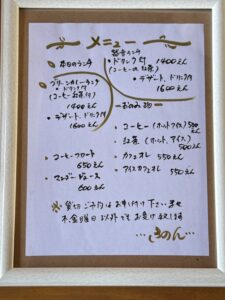 メニュー
本日のランチ
・ドリンク付 1400えん
(コーヒーor紅茶)
・デザート、ドリンク付
1600えん
グリーンカレーランチ
・ドリンク付
(コーヒーor紅茶付)
1400えん
・デザート、ドリンク付
1600えん
お飲み物
・コーヒー(ホット、アイス) 500えん
・紅茶(ホット、アイス)
500えん
・カフェオレ 550えん
・アイスカフェオレ
550えん
・コーヒーフロート
650えん
・マンゴージュース
600えん
※貸切ご予約はお申し付け下さいませ
木、金曜日以外でもお受け致します